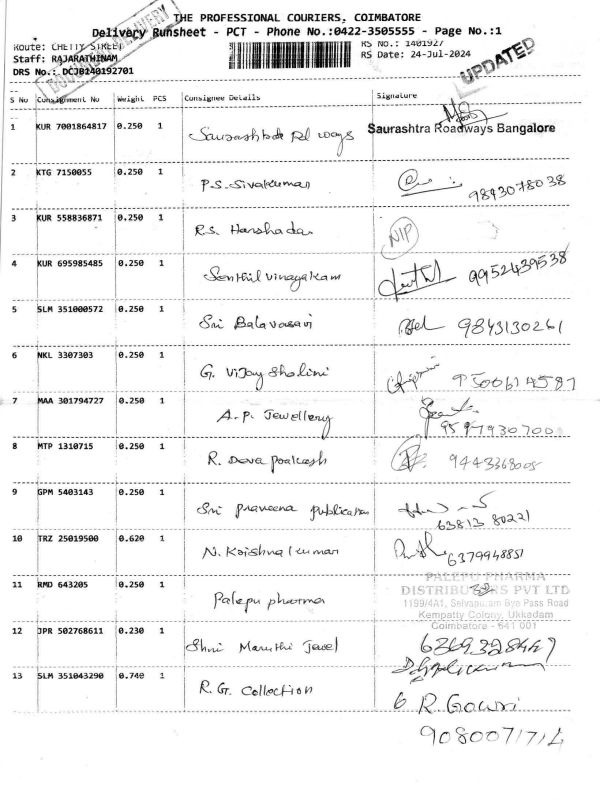 THE PROFESSIONAL COURIERS, COIMBATORE
Delivery Runsheet - PCT - Phone No.:0422-3505555 - Page No.:1
Route: CHETTY STREET RS No.: 1401927
Staff: RAJARATHINAM RS Date: 24-Jul-2024
DRS No.: DCJB140192701
DELIVERY
UPDATED
S No Consignment No Weight PCS Consignee Details Signature
1 KUR 7001864817 0.250 1 Saurashtra Rd ways Saurashtra Roadways Bangalore
2 KTG 7150055 0.250 1 P.S. Sivakumar 9843078038
3 KUR 558836871 0.250 1 R.S. Harshada NIP
4 KUR 695985485 0.250 1 Senthil vinayakam 9952439538
5 SLM 351000572 0.250 1 Sri Balavasavi 9843130261
6 NKL 3307303 0.250 1 G. Vijay Shalini 9500614587
7 MAA 301794727 0.250 1 A.P. Jewellery 9597930700
8 MTP 1310715 0.250 1 R. Deva Prakash 9443368005
9 GPM 5403143 0.250 1 Sri Praveena publication 63813 80221
10 TRZ 25019500 0.620 1 N. Krishna kumar 6379948851
11 RMD 643205 0.250 1 Palepu pharma
PALEPU PHARMA
DISTRIBUTORS PVT LTD
1199/4A1, Selvapuram Bye Pass Road
Kempatty Colony, Ukkadam
Coimbatore - 641 001
12 JPR 502768611 0.230 1 Shri Maruthi Jewel
13 SLM 351043290 0.740 1 R.G. Collection R. Gowri